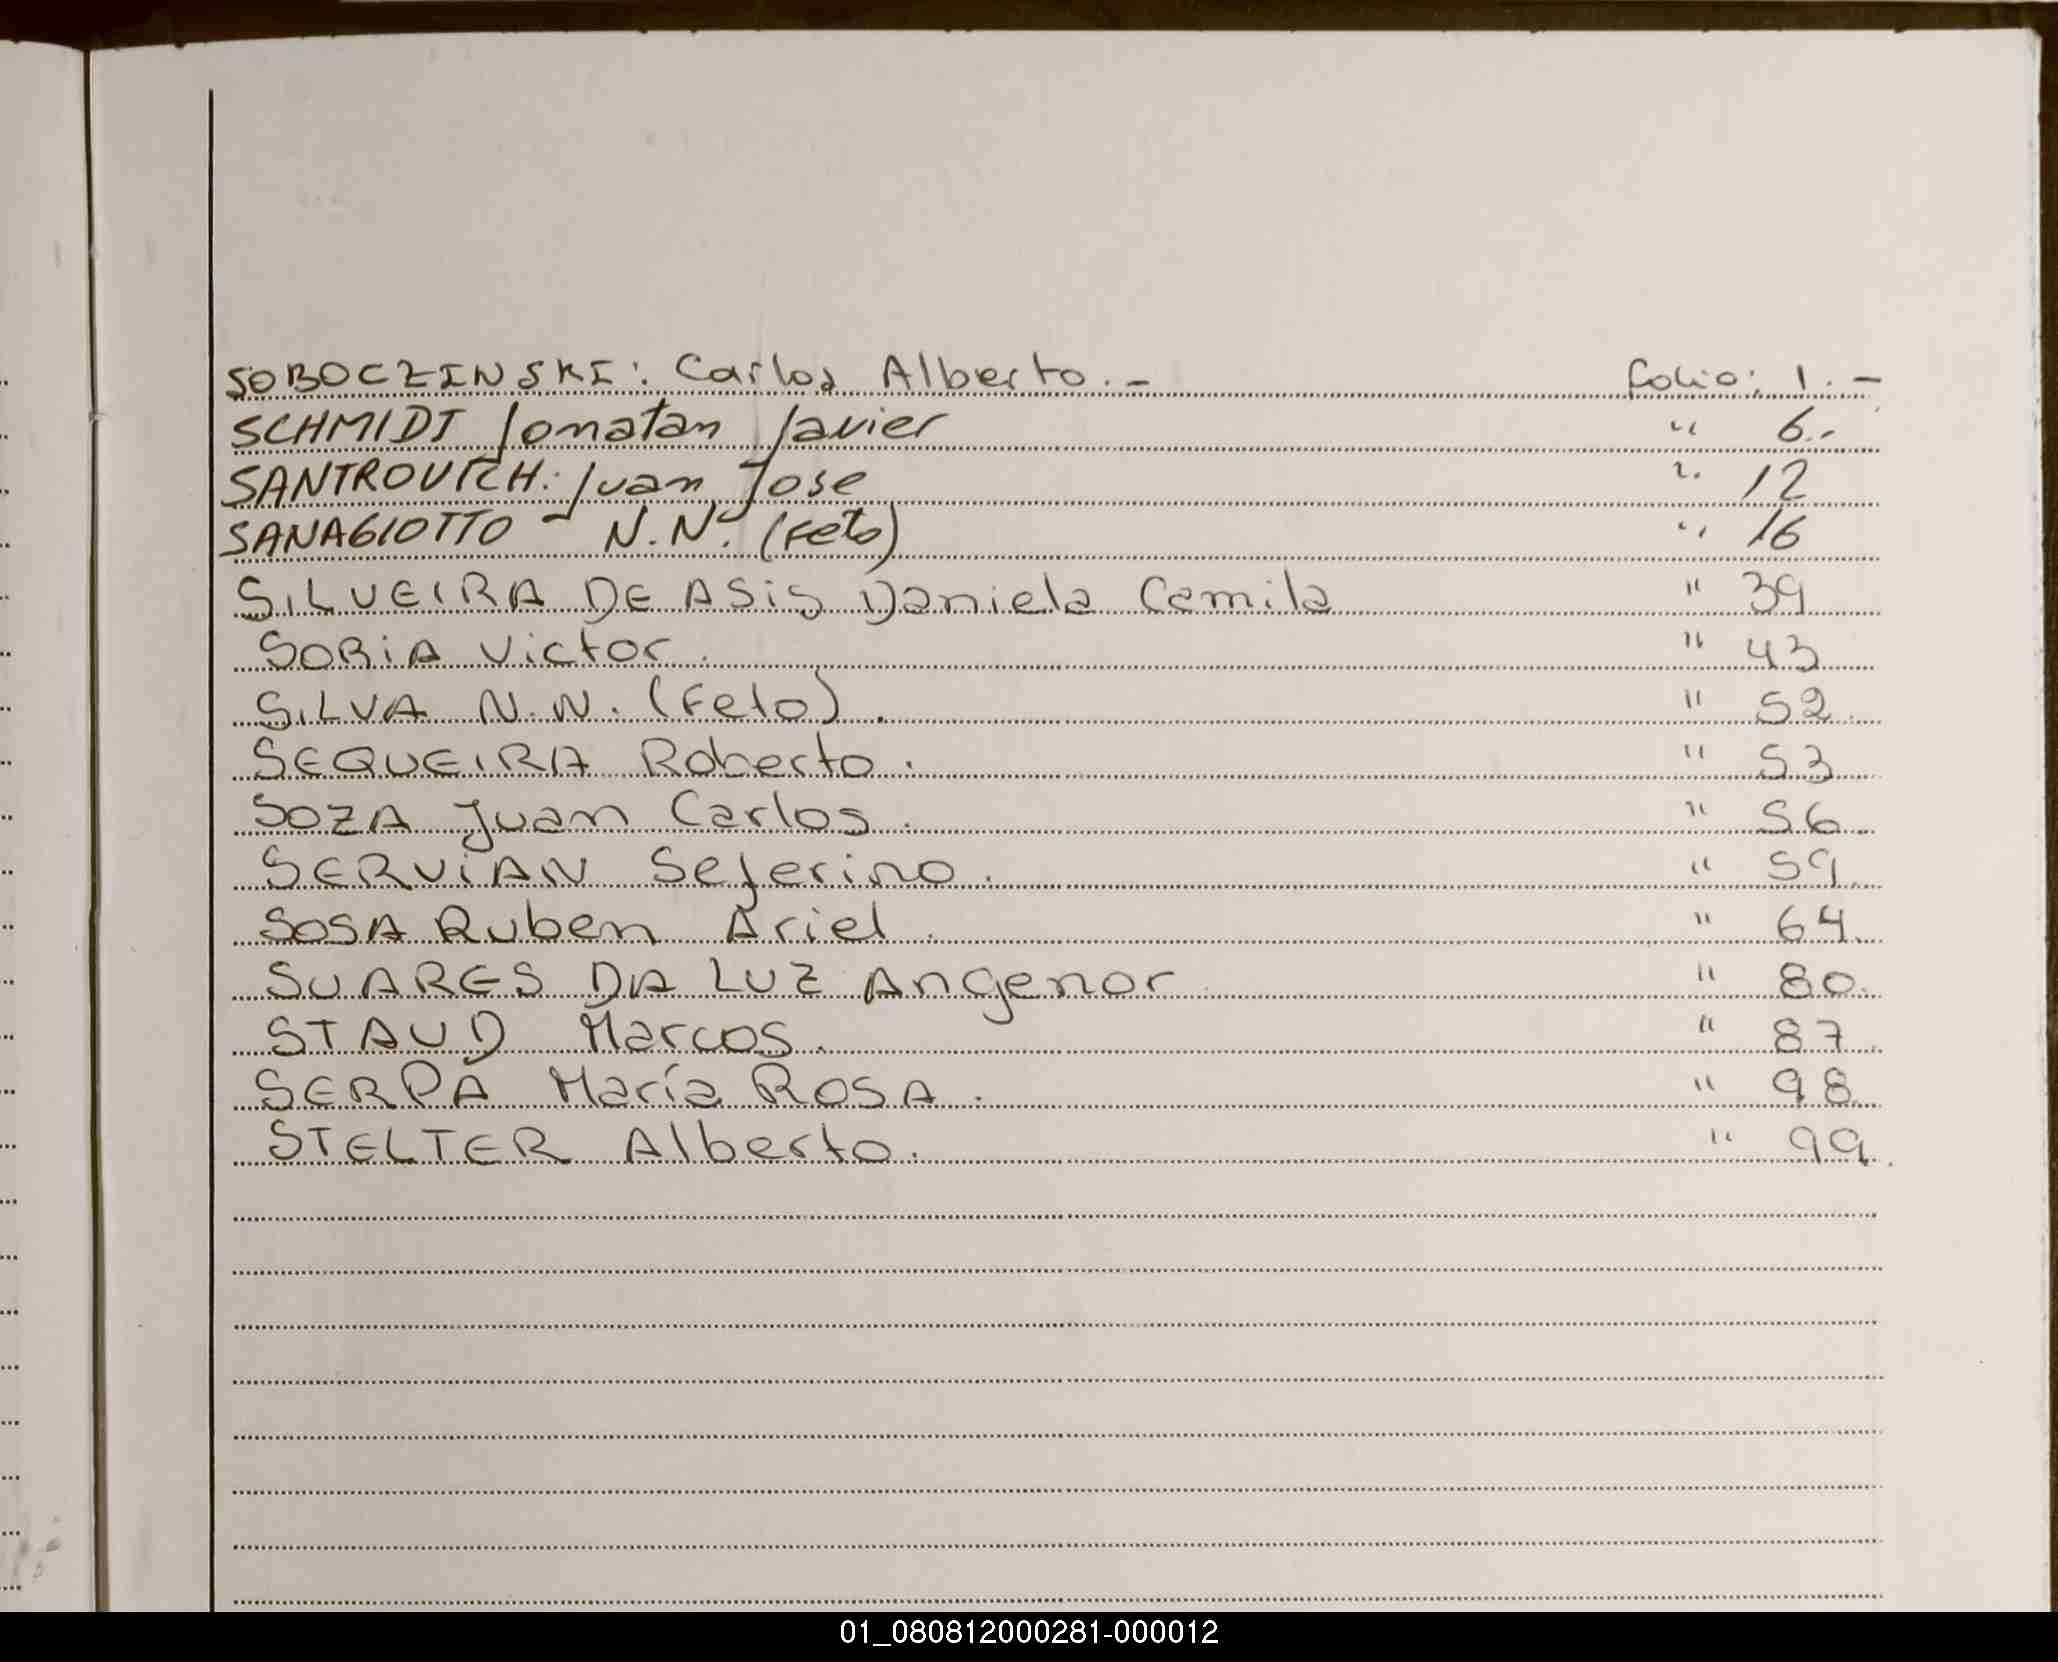 SOBOCZINSKI: Carlos Alberto.- folio: 1.-
SCHMIDT Jonatan Javier " 6.-
SANTROVICH: Juan Jose " 12
SANAGIOTTO - N.N. (Feto) " 16
SILVEIRA DE ASiS Daniela Camila " 39
SORiA Victor. " 43
SILVA N.N. (Feto). " 52.
SEQUEIRA Roberto. " 53
SOZA Juan Carlos. " 56.
SERViAN Seferino. " 59.
SOSA Ruben Ariel. " 64.
SUARES DA LUZ Angenor. " 80.
STAUD Marcos. " 87.
SERPA María ROSA. " 98.
STELTER Alberto. " 99.
01_080812000281-000012